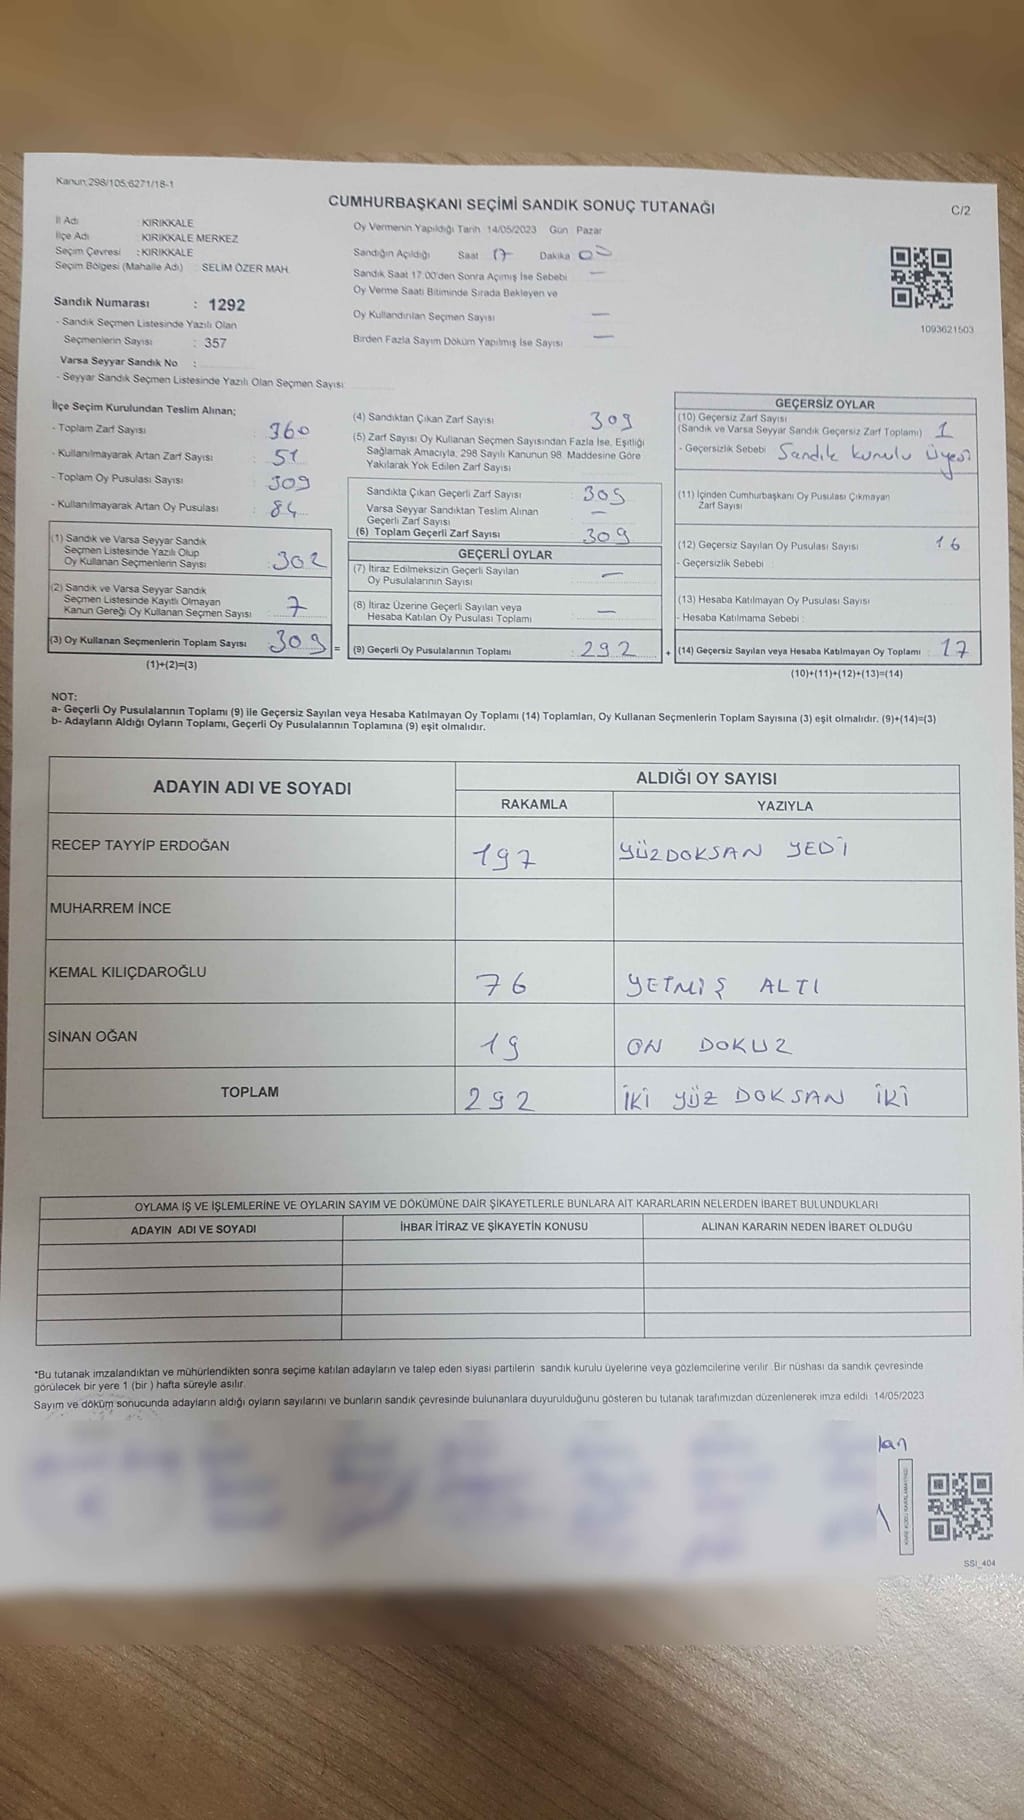 Kanun;298/105;6271/18-1
CUMHURBAŞKANI SEÇİMİ SANDIK SONUÇ TUTANAĞI
C/2
İl Adı : KIRIKKALE
İlçe Adı : KIRIKKALE MERKEZ
Seçim Çevresi : KIRIKKALE
Seçim Bölgesi (Mahalle Adı) : SELİM ÖZER MAH.
Oy Vermenin Yapıldığı Tarih 14/05/2023 Gün Pazar
Sandığın Açıldığı Saat 17 Dakika 00
Sandık Saat 17:00'den Sonra Açımış İse Sebebi —
Oy Verme Saati Bitiminde Sırada Bekleyen ve
Oy Kullandırılan Seçmen Sayısı —
Birden Fazla Sayım Döküm Yapılmış İse Sayısı —
1093621503
Sandık Numarası : 1292
- Sandık Seçmen Listesinde Yazılı Olan
Seçmenlerin Sayısı : 357
Varsa Seyyar Sandık No :
- Seyyar Sandık Seçmen Listesinde Yazılı Olan Seçmen Sayısı:
İlçe Seçim Kurulundan Teslim Alınan;
- Toplam Zarf Sayısı : 360
- Kullanılmayarak Artan Zarf Sayısı : 51
- Toplam Oy Pusulası Sayısı : 309
- Kullanılmayarak Artan Oy Pusulası : 84
(1) Sandık ve Varsa Seyyar Sandık
Seçmen Listesinde Yazılı Olup
Oy Kullanan Seçmenlerin Sayısı : 302
(2) Sandık ve Varsa Seyyar Sandık
Seçmen Listesinde Kayıtlı Olmayan
Kanun Gereği Oy Kullanan Seçmen Sayısı : 7
(3) Oy Kullanan Seçmenlerin Toplam Sayısı : 309 =
(1)+(2)=(3)
(4) Sandıktan Çıkan Zarf Sayısı 309
(5) Zarf Sayısı Oy Kullanan Seçmen Sayısından Fazla İse, Eşitliği
Sağlamak Amacıyla; 298 Sayılı Kanunun 98. Maddesine Göre
Yakılarak Yok Edilen Zarf Sayısı
Sandıkta Çıkan Geçerli Zarf Sayısı : 309
Varsa Seyyar Sandıktan Teslim Alınan
Geçerli Zarf Sayısı : —
(6) Toplam Geçerli Zarf Sayısı : 309
GEÇERLİ OYLAR
(7) İtiraz Edilmeksizin Geçerli Sayılan
Oy Pusulalarının Sayısı : —
(8) İtiraz Üzerine Geçerli Sayılan veya
Hesaba Katılan Oy Pusulası Toplamı : —
(9) Geçerli Oy Pusulalarının Toplamı : 292 +
GEÇERSİZ OYLAR
(10) Geçersiz Zarf Sayısı
(Sandık ve Varsa Seyyar Sandık Geçersiz Zarf Toplamı) : 1
- Geçersizlik Sebebi : Sandık kurulu üyesi
(11) İçinden Cumhurbaşkanı Oy Pusulası Çıkmayan
Zarf Sayısı
(12) Geçersiz Sayılan Oy Pusulası Sayısı : 16
- Geçersizlik Sebebi :
(13) Hesaba Katılmayan Oy Pusulası Sayısı :
- Hesaba Katılmama Sebebi :
(14) Geçersiz Sayılan veya Hesaba Katılmayan Oy Toplamı : 17
(10)+(11)+(12)+(13)=(14)
NOT:
a- Geçerli Oy Pusulalarının Toplamı (9) ile Geçersiz Sayılan veya Hesaba Katılmayan Oy Toplamı (14) Toplamları, Oy Kullanan Seçmenlerin Toplam Sayısına (3) eşit olmalıdır. (9)+(14)=(3)
b- Adayların Aldığı Oyların Toplamı, Geçerli Oy Pusulalarının Toplamına (9) eşit olmalıdır.
ADAYIN ADI VE SOYADI
ALDIĞI OY SAYISI
RAKAMLA YAZIYLA
RECEP TAYYİP ERDOĞAN 197 YÜZDOKSAN YEDİ
MUHARREM İNCE
KEMAL KILIÇDAROĞLU 76 YETMİŞ ALTI
SİNAN OĞAN 19 ON DOKUZ
TOPLAM 292 İKİ YÜZ DOKSAN İKİ
OYLAMA İŞ VE İŞLEMLERİNE VE OYLARIN SAYIM VE DÖKÜMÜNE DAİR ŞİKAYETLERLE BUNLARA AİT KARARLARIN NELERDEN İBARET BULUNDUKLARI
ADAYIN ADI VE SOYADI İHBAR İTİRAZ VE ŞİKAYETİN KONUSU ALINAN KARARIN NEDEN İBARET OLDUĞU
*Bu tutanak imzalandıktan ve mühürlendikten sonra seçime katılan adayların ve talep eden siyasi partilerin sandık kurulu üyelerine veya gözlemcilerine verilir. Bir nüshası da sandık çevresinde
görülecek bir yere 1 (bir ) hafta süreyle asılır.
Sayım ve döküm sonucunda adayların aldığı oyların sayılarını ve bunların sandık çevresinde bulunanlara duyurulduğunu gösteren bu tutanak tarafımızdan düzenlenerek imza edildi. 14/05/2023
lan
SSI_404